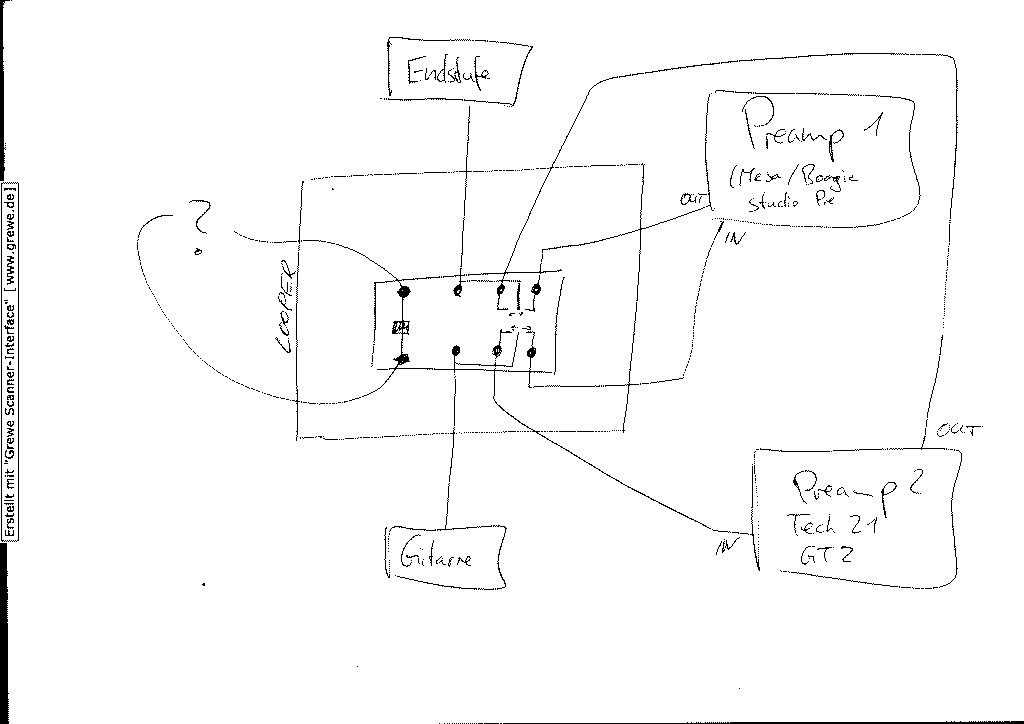 Endstufe
Preamp 1
(Mesa/Boogie
Studio Pre
OUT
IN
?
LOOPER
OUT
Preamp 2
Tech 21
GT2
IN
Gitarre
Erstellt mit "Grewe Scanner-Interface" [www.grewe.de]